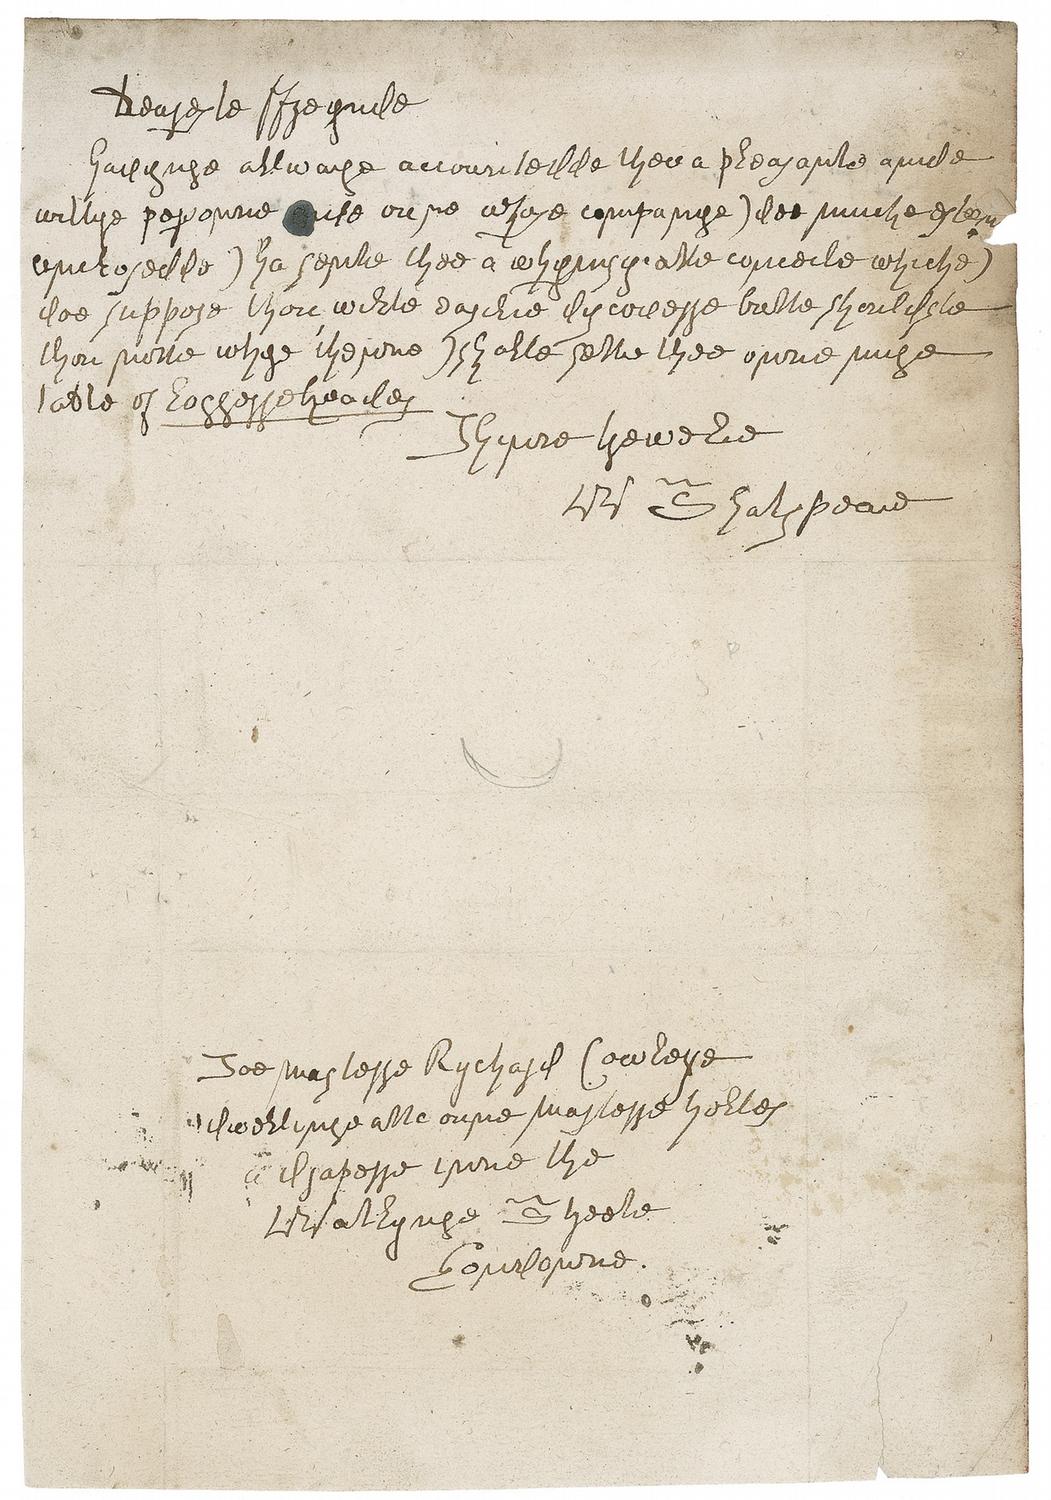 Deareste Ffreynde
Havynge allwaye accountedde thee a pleasante ande
wittye personne oune whose companye I doe muche esteem
inclosedde I ha sente thee a whymsycalle conceite whiche I
doe suppose thou wilte easylie dyscoverre butte shouldste
thou notte whye thenne I shalle sette thee onne mye
table of Loggerreheades
Thyne trewelie
W Shakspeare
Toe masterre Rychard Cowleye
dwellynge atte oune masterre Holles
a draperre inne the
Watlynge Streete
Londonne.